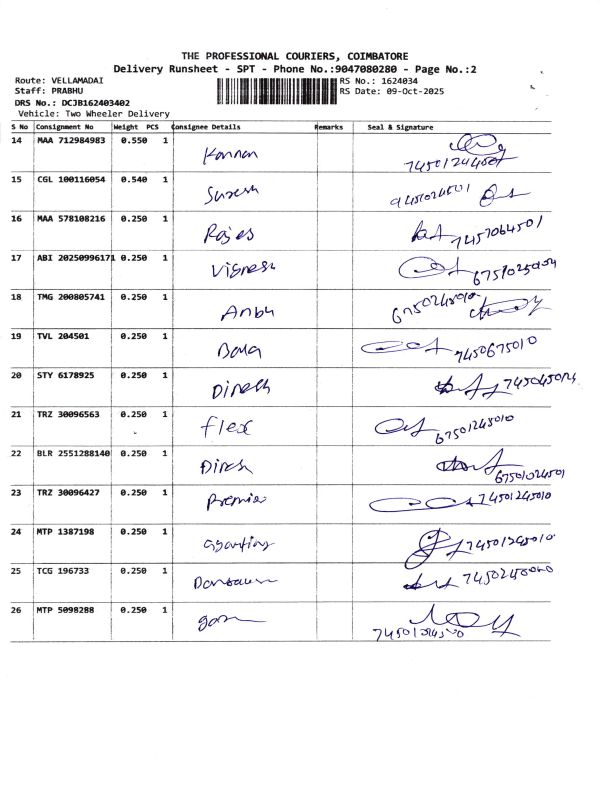 THE PROFESSIONAL COURIERS, COIMBATORE
Delivery Runsheet - SPT - Phone No.:9047080280 - Page No.:2
Route: VELLAMADAI
RS No.: 1624034
Staff: PRABHU
RS Date: 09-Oct-2025
DRS No.: DCJB162403402
Vehicle: Two Wheeler Delivery
S No Consignment No Weight PCS Consignee Details Remarks Seal & Signature
14 MAA 712984983 0.550 1 Kannan
15 CGL 100116054 0.540 1 Suresh
16 MAA 578108216 0.250 1 Rajes 7457064501
17 ABI 2025099617 1 0.250 1 Vignesh
18 TMG 200805741 0.250 1 Anbu
19 TVL 204501 0.250 1 Bala 7450675010
20 STY 6178925 0.250 1 Dinesh
21 TRZ 30096563 0.250 1 flex 67501245010
22 BLR 2551288140 0.250 1 Dinesh 67501024501
23 TRZ 30096427 0.250 1 Premia 74501245010
24 MTP 1387198 0.250 1 74501245010
25 TCG 196733 0.250 1
26 MTP 5098288 0.250 1